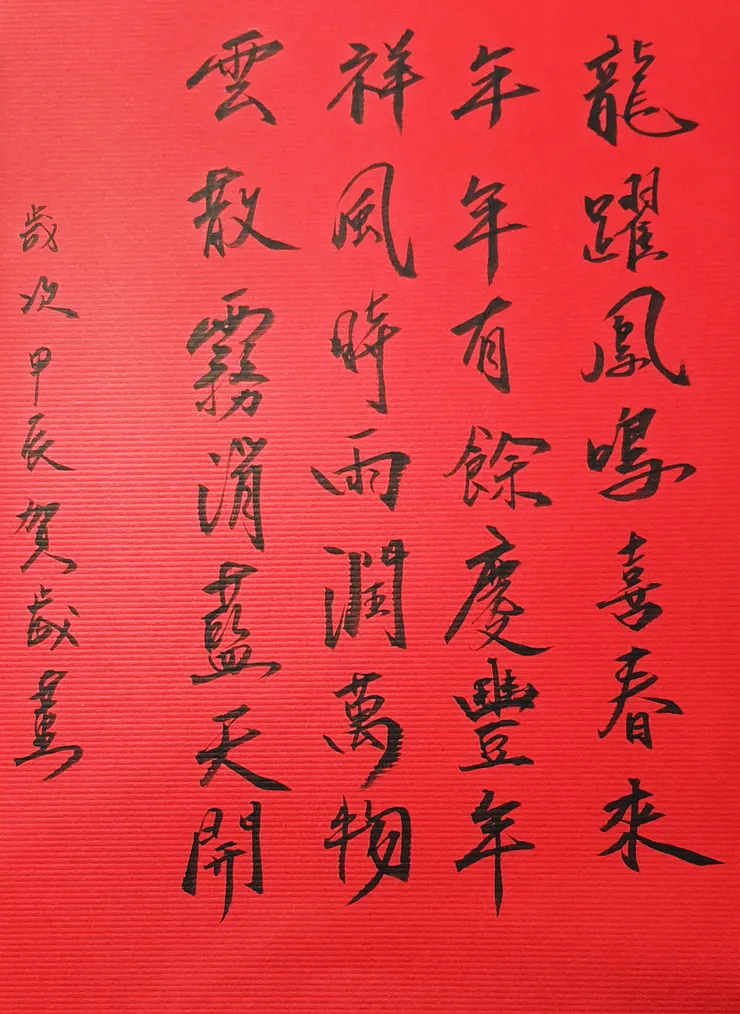 龍躍鳳鳴喜春來
年年有餘慶豐年
祥風時雨潤萬物
雲散霧消藍天開
歲次甲辰賀歲